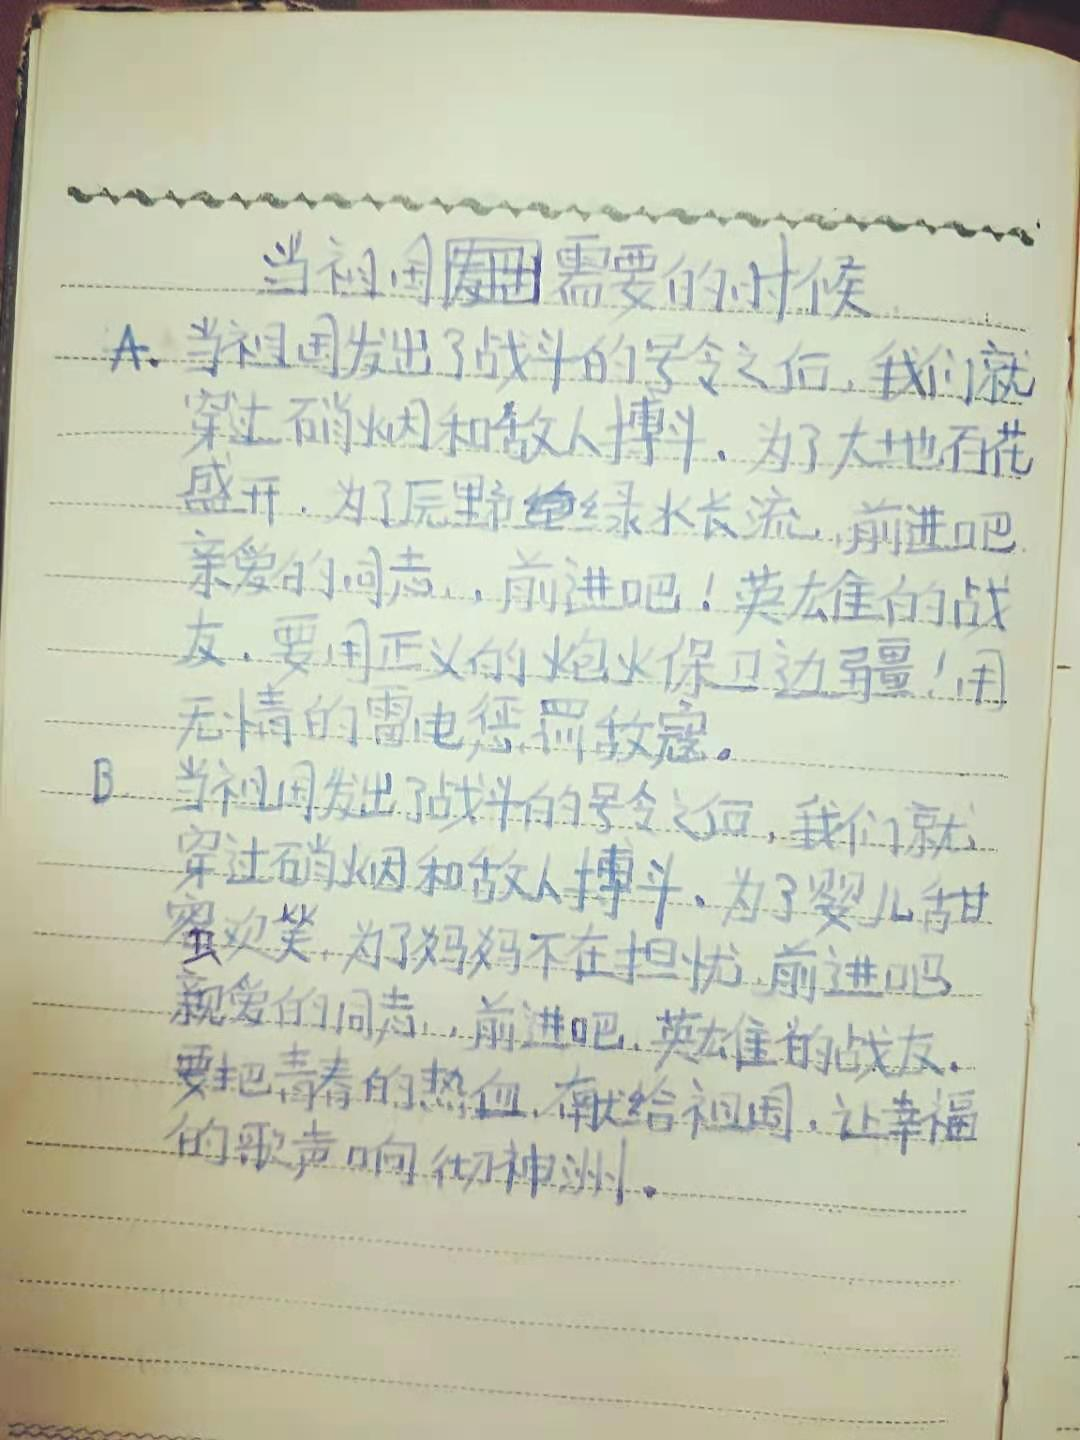 当祖国需要的时候
A. 当祖国发出了战斗的号令之后，我们就
穿过硝烟和敌人搏斗．为了大地百花
盛开．为了原野绿水长流，前进吧
亲爱的同志，前进吧！英雄的战
友．要用正义的炮火保卫边疆！用
无情的雷电惩罚敌寇。
B. 当祖国发出了战斗的号令之后，我们就
穿过硝烟和敌人搏斗．为了婴儿甜
蜜欢笑．为了妈妈不在担忧．前进吧
亲爱的同志，前进吧．英雄的战友．
要把青春的热血．献给祖国．让幸福
的歌声响彻神洲。